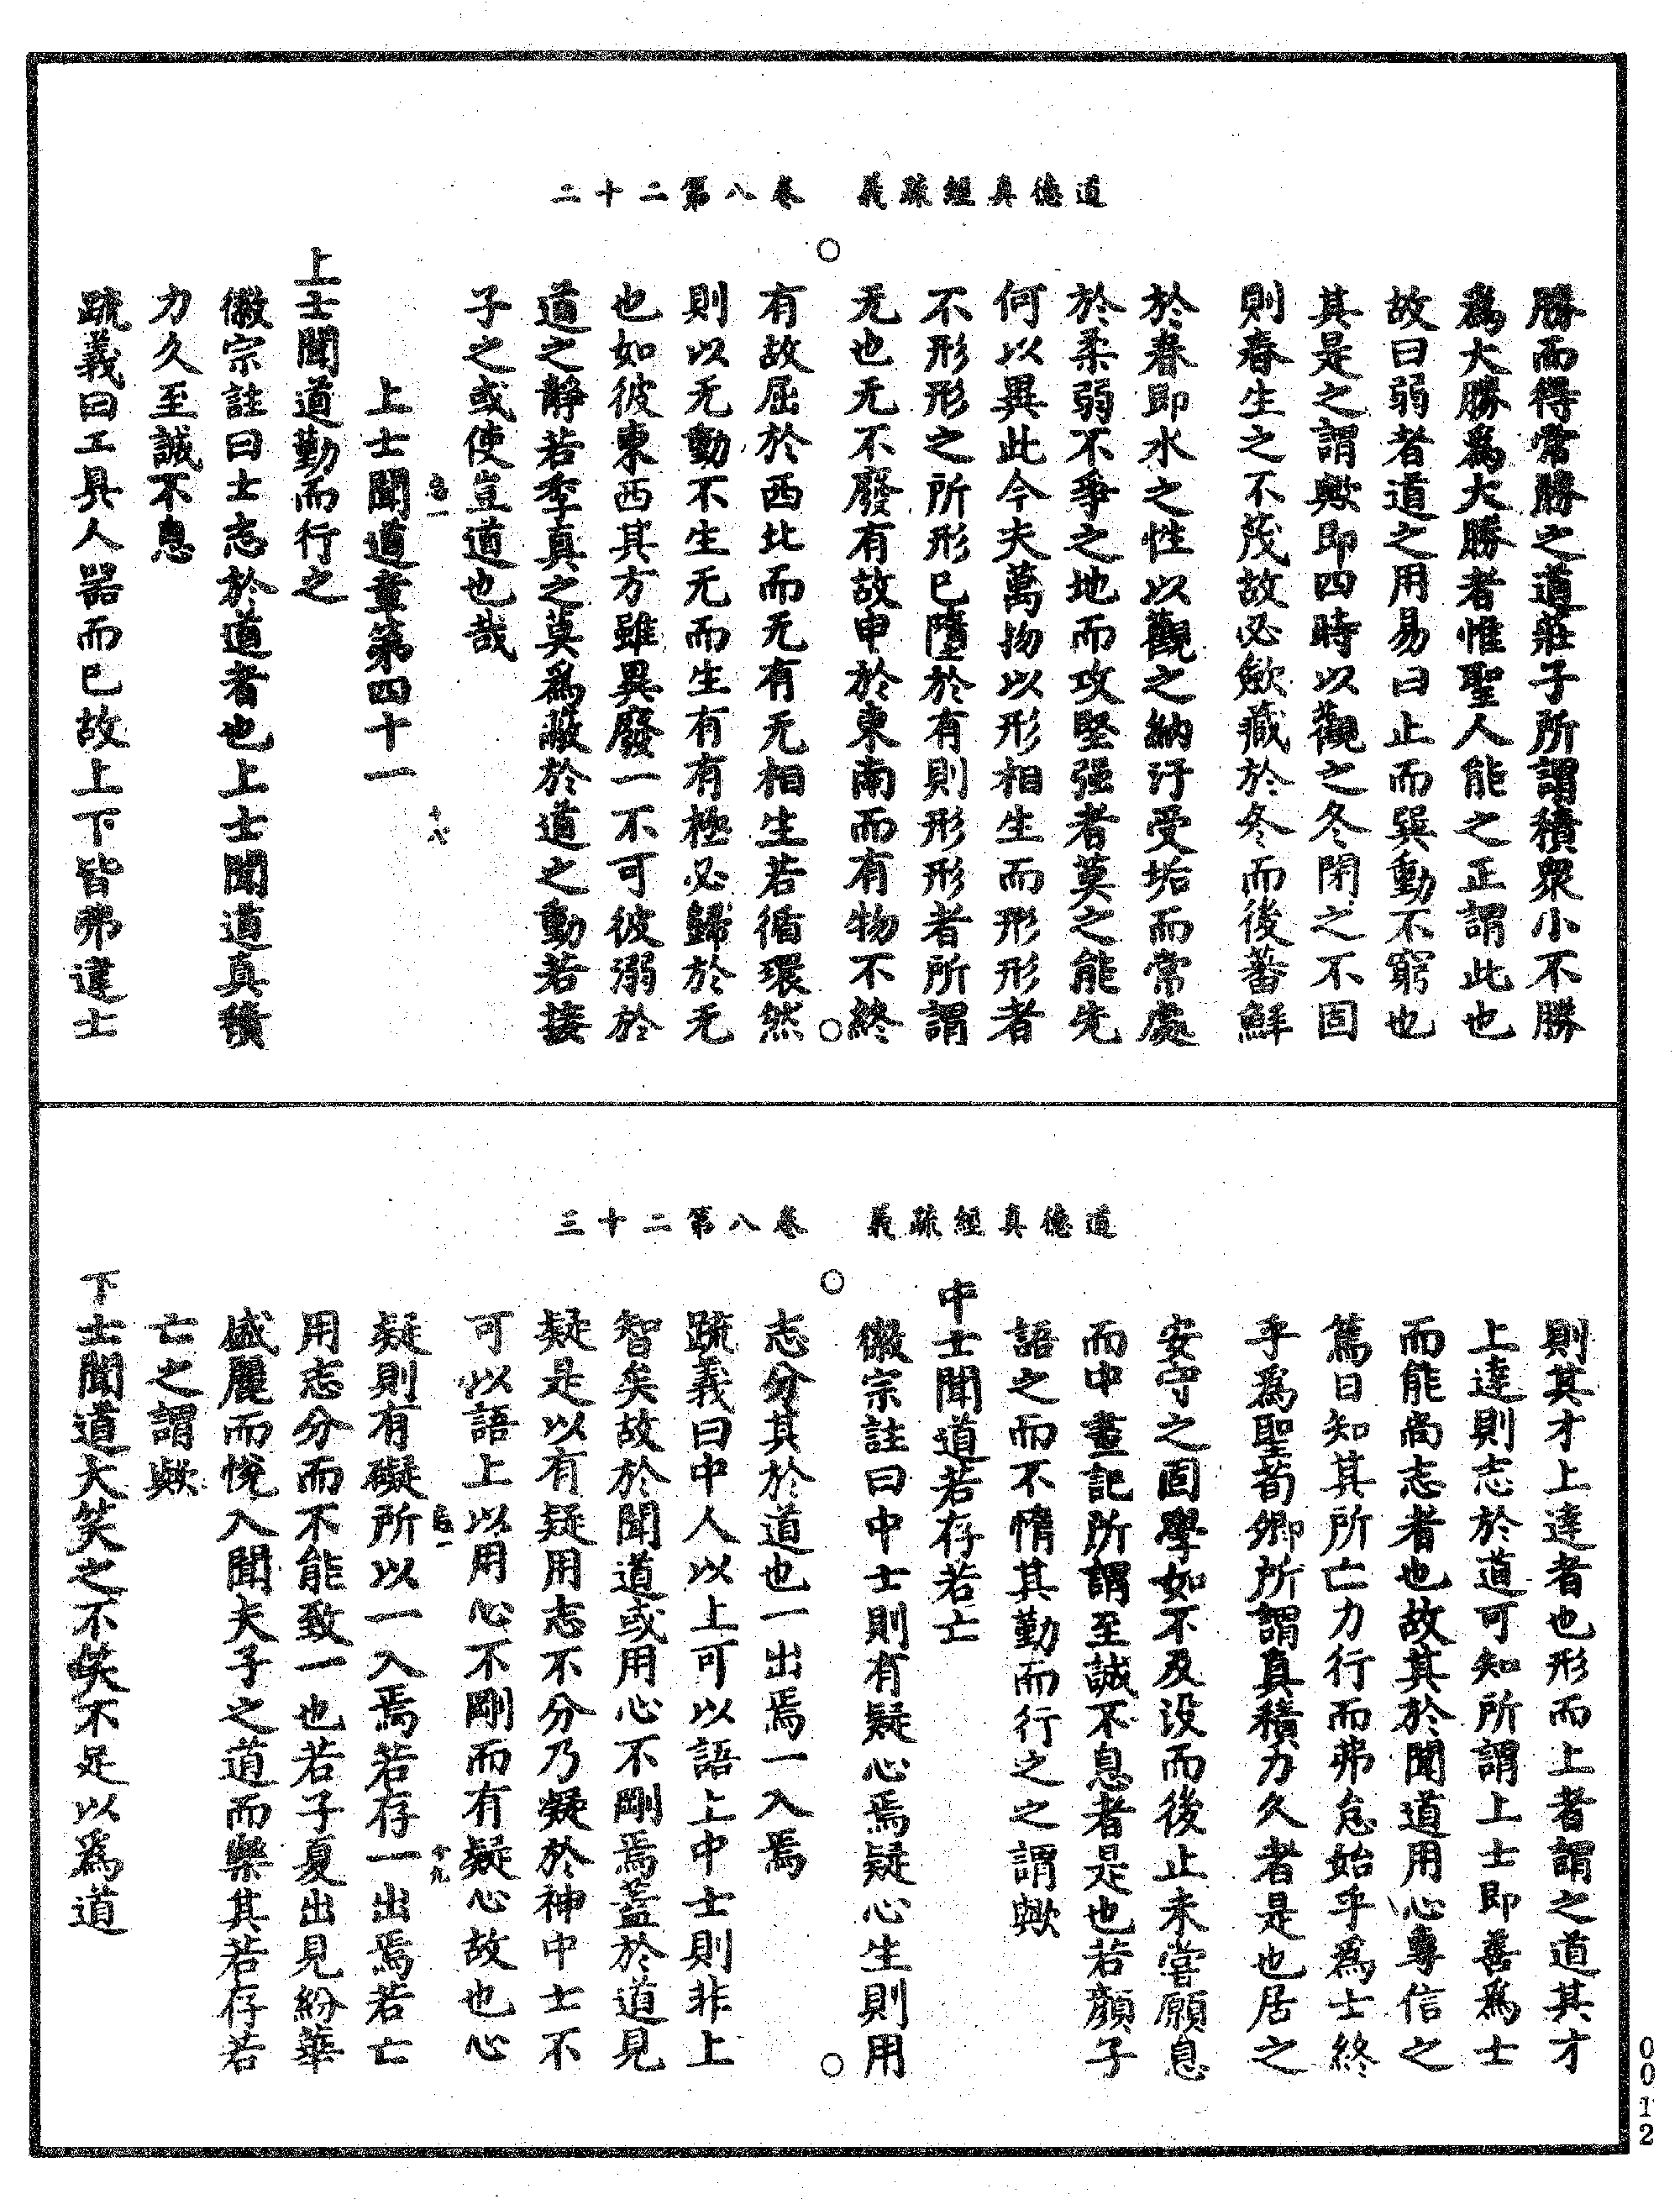 道德真經疏義　卷八第二十二
勝而得常勝之道莊子所謂積衆小不勝
爲大勝爲大勝者惟聖人能之正謂此也
故曰弱者道之用易曰止而巽動不窮也
其是之謂歟即四時以觀之冬閉之不固
則春生之不茂故必歛藏於冬而後蕃鮮
於春即水之性以觀之納汙受垢而常處
於柔弱不爭之地而攻堅强者莫之能先
何以異此今夫萬物以形相生而形形者
不形形之所形已墮於有則形形者所謂
无也无不廢有故申於東南而有物不終
有故屈於西北而无有无相生若循環然
則以无動不生无而生有有極必歸於无
也如彼東西其方雖異廢一不可彼溺於
道之靜若季真之莫爲蔽於道之動若接
子之或使豈道也哉
上士聞道章第四十一
上士聞道勤而行之
徽宗註曰士志於道者也上士聞道真積
力久至誠不息
疏義曰工具人器而已故上下皆弗達士
道德真經疏義　卷八第二十三
則其才上達者也形而上者謂之道其才
上達則志於道可知所謂上士即善爲士
而能尚志者也故其於聞道用心專信之
篤日知其所亡力行而弗怠始乎爲士終
乎爲聖荀卿所謂真積力久者是也居之
安守之固學如不及没而後止未嘗願息
而中畫記所謂至誠不息者是也若顏子
語之而不惰其勤而行之之謂歟
中士聞道若存若亡
徽宗註曰中士則有疑心焉疑心生則用
志分其於道也一出焉一入焉
疏義曰中人以上可以語上中士則非上
智矣故於聞道或用心不剛焉蓋於道見
疑是以有疑用志不分乃凝於神中士不
可以語上以用心不剛而有疑心故也心
疑則有礙所以一入焉若存一出焉若亡
用志分而不能致一也若子夏出見紛華
盛麗而悅入聞夫子之道而樂其若存若
亡之謂歟
下士聞道大笑之不笑不足以爲道
0012